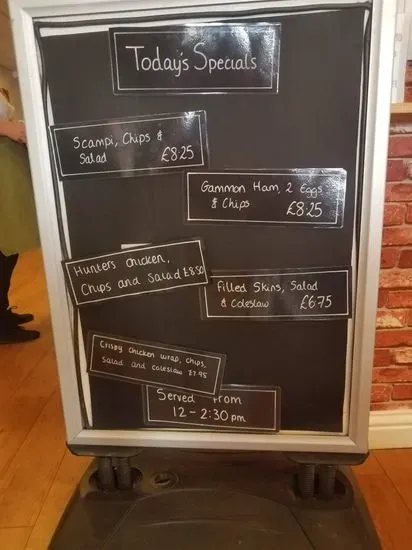 Today's Specials
Scampi, Chips &
Salad £8.25
Gammon Ham, 2 Eggs
& Chips £8.25
Hunters Chicken,
Chips and Salad £8.50
Filled Skins, Salad
& Coleslaw £6.75
Crispy chicken wrap, chips,
Salad and coleslaw £7.95
Served From
12-2:30pm